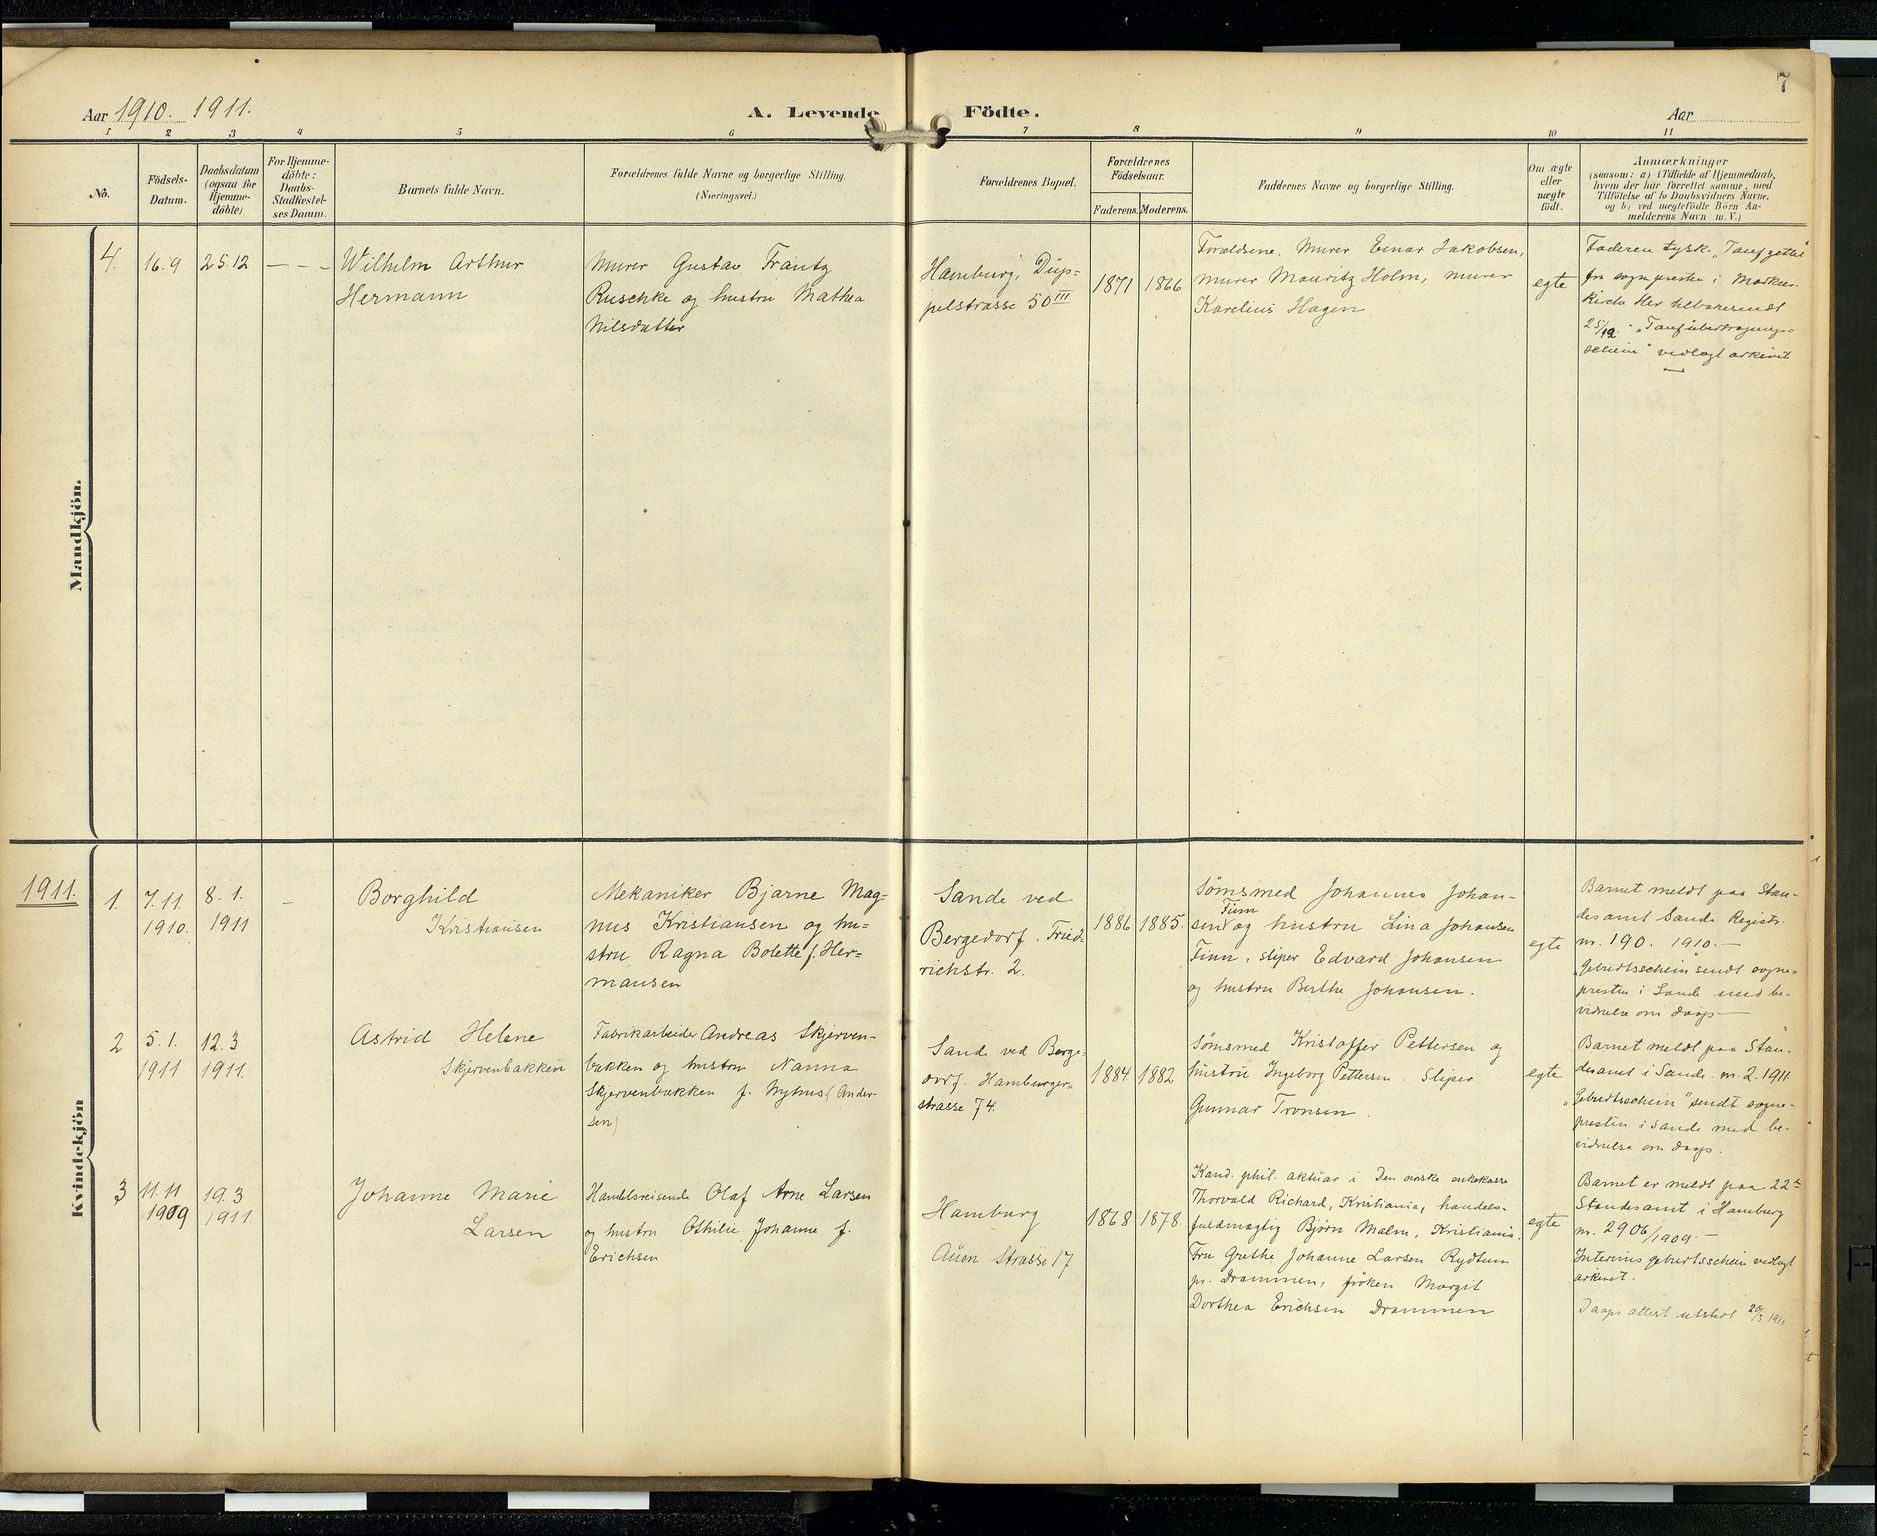 7
Aar 1910. 1911.
A. Levende Födte.
Aar
1 2 3 4 5 6 7 8 9 10 11
No.
Födsels-
Datum.
Daabsdatum
(ogsaa for
Hjemme-
döbte)
For Hjemme-
döbte:
Daabs-
Stadfæstel-
ses Datum.
Barnets fulde Navn.
Forældrenes fulde Navne og borgerlige Stilling.
(Næringsvei.)
Forældrenes Bopæl.
Forældrenes
Födselsaar.
Faderens. Moderens.
Faddernes Navne og borgerlige Stilling.
Om ægte
eller
uægte
födt.
Anmærkninger
(saasom: a) i Tilfælde af Hjemmedaab,
hvem der har forrettet samme, med
Tilföielse af to Daabsvidners Navne,
og b) ved uægtefödte Börn An-
melderens Navn m. V.)
Mandkjön.
4.
16.9
25.12
— — —
Wilhelm Arthur
Hermann
Murer Gustav Frantz
Ruschke og hustru Mathea
Nilsdatter
Hamburg, Düp-
pelstrasse 50 III
1871
1866
Foreldrene, Murer Einar Jakobsen,
murer Mauritz Holm, murer
Karelius Hagen
egte
Faderen tysk.
fra sogneprester i
kirche
25/12 - "Taufübertragungs-
schein" vedlagt arkivet
Kvindekjön
1911.
1.
7.11
1910.
8.1.
1911
–
Borghild
Kristiansen
Mekaniker Bjarne Mag-
nus Kristiansen og hu-
stru Ragna Bolette f. Her-
mansen
Sande ved
Bergedorf, Fried-
richstr. 2.
1886
1885.
Sømsmed Johannes Johan-
sen Finn og hustru Lina Johansen
Finn, sliper Edvard Johansen
og hustru Berthe Johansen.
egte
Barnet meldt paa Stan-
desamt Sande Registr.
nr. 190. 1910.—
"Geburtsschein" sendt sogne-
presten i Sande med be-
vidnelse om daap—
2
5.1.
1911
12.3
1911.
Astrid Helene
Skjervenbakken
Fabrikarbeider Andreas Skjerven-
bakken og hustru Nanna
Skjervenbakken f. Nyhus (Ander-
sen)
Sande ved Berge-
dorf. Hamburger-
strasse 74.
1884
1882
Sømsmed Kristoffer Pettersen og
hustru Ingeborg Pettersen. Sliper
Gunnar Tronsen.
egte
Barnet meldt paa Stan-
desamt i Sande. nr. 2. 1911.
"Geburtsschein" sendt sogne-
presten i Sande med be-
vidnelse om daap.
3
11.11
1909
19.3
1911.
Johanne Marie
Larsen
Handelsreisende Olaf Arne Larsen
og hustru Othilie Johanne f.
Erichsen
Hamburg
Auen Strasse 17
1868
1878.
Kand. phil. aktuar i Den norske enkekasse
Thorvald Richard, Kristiania, handels-
fuldmægtig Bjørn Malm, Kristiania.
Fru Grethe Johanne Larsen Rydtun
pr. Drammen, frøken Margit
Dorthea Erichsen Drammen
egte
Barnet er meldt paa 22de
Standesamt i Hamburg
nr. 2906/1909.—
Interims geburtsschein vedlagt
arkivet.
Daaps attest utstedt 20/3 1911